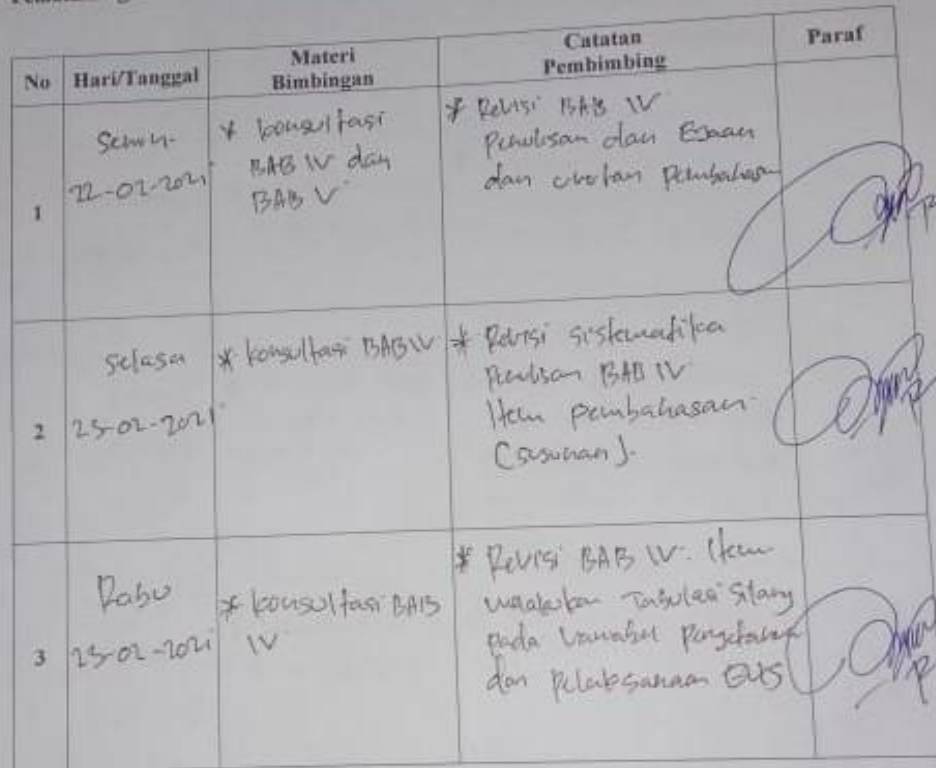 No Hari/Tanggal Materi Bimbingan Catatan Pembimbing Paraf
1
Senin
22-02-2021
* konsultasi
BAB IV dan
BAB V
* Revisi BAB IV
Penulisan dan Ejaan
dan Pembahasan
2
Selasa
23-02-2021
* konsultasi BAB IV
* Revisi sistematika
Penulisan BAB IV
Item pembahasan
(susunan).
3
Rabu
* konsultasi BAB
IV
* Revisi BAB IV. Item
Tabulasi Silang
pada Variabel
dan Pelaksanaan